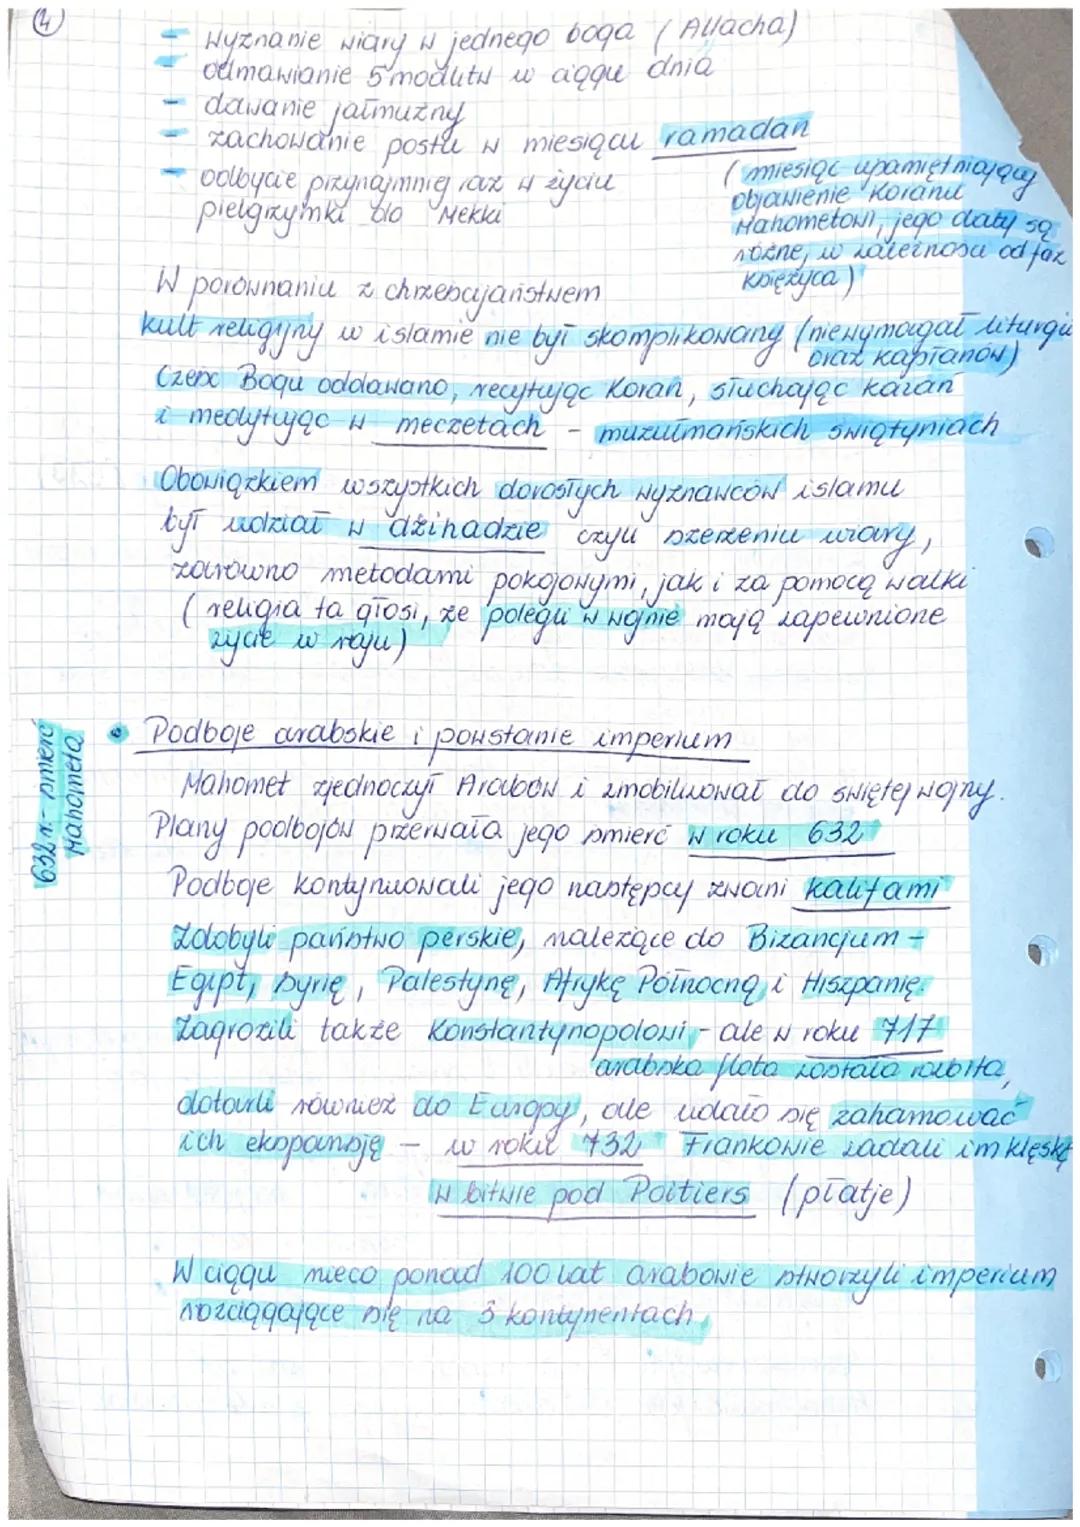 4
- wyznanie wiary w jednego boga (Allacha)
- odmawianie 5 modlitw w ciągu dnia
- dawanie jałmużny
- zachowanie postu w miesiącu ramadan
(miesiąc upamiętniający
objawienie Koranu
Mahometowi, jego daty są
różne, w zależności od faz
księżyca)
- odbycie przynajmniej raz w życiu
pielgrzymki do Mekki
W porównaniu z chrześcijaństwem
kult religijny w islamie nie był skomplikowany (nie wymagał liturgii
oraz kapłanów)
Cześć Bogu oddawano, recytując Koran, słuchając kazań
i medytując w meczetach - muzułmańskich świątyniach
Obowiązkiem wszystkich dorosłych wyznawców islamu
był udział w dżihadzie czyli szerzeniu wiary,
zarówno metodami pokojowymi, jak i za pomocą walki
(religia ta głosi, że polegli w wojnie mają zapewnione
życie w raju)
632 r. - śmierć
Mahometa
• Podboje arabskie i powstanie imperium
Mahomet zjednoczył Arabów i zmobilizował do świętej wojny.
Plany podbojów przerwała jego śmierć w roku 632
Podboje kontynuowali jego następcy zwani kalifami
Zdobyli państwo perskie, należące do Bizancjum -
Egipt, Syrię, Palestynę, Afrykę Północną i Hiszpanię.
Zagrozili także Konstantynopolowi - ale w roku 717
arabska flota została rozbita,
dotarli również do Europy, ale udało się zahamować
ich ekspansję - w roku 732 Frankowie zadali im klęskę
w bitwie pod Poitiers (płatje)
W ciągu nieco ponad 100 lat arabowie stworzyli imperium
rozciągające się na 3 kontynentach.